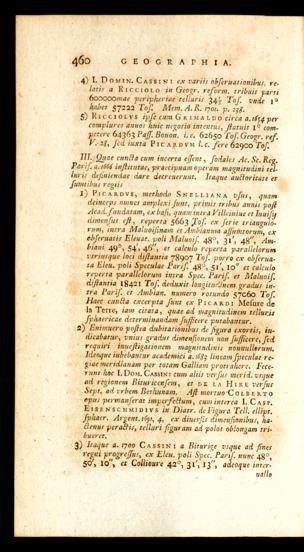 460 GEOGRAPHIA.
4) I. DOMIN. CASSINI ex variis observationibus, re-
latis a RICCIOLO in Geogr. reform. tribuit parti
600000mae peripheriae telluris 34½ Tos. vnde 1°
habet 57222 Tos. Mem. A. R. 1701. p. 238.
5) RICCIOLVS ipse cum GRIMALDO circa a. 1654 per
complures annos huic negotio intentus, statuit 1° com-
petere 64363 Pass. Bonon. i. e. 62650 Tos. Geogr. ref.
V. 28, sed iuxta PICARDVM i. c. fere 62900 Tos.
III. Quae cuncta cum incerta essent, sodales Ac. Sc. Reg.
Paris. a. 1666 institutae, praecipuam operam magnitudini tel-
luris definiendae dare decreuerunt. Itaque auctoritate et
sumtibus regiis
1) PICARDVS, methodo SNELLIANA vsus, quam
deinceps nunc amplexi sunt, primis tribus annis post
Acad. fundatam, ex basi, quam intra Villeiuiue et Iuuisy
dimensus est, reperta 5663 Tos. ex serie triangulo-
rum, intra Maluoisinam et Ambianum assumtorum, ex
obseruatis Eleuat. poli Maluois. 48°, 31', 48", Am-
biani 49°, 54', 46", et calculo reperta parallelorum
vtriusque loci distantia 78907 Tos. porro ex obserua-
ta Eleu. poli Speculae Paris. 48°, 51', 10" et calculo
reperta parallelorum intra Spec. Paris. et Maluois.
distantia 18421 Tos. deduxit longitudinem gradus in-
tra Paris. et Ambian. numero rotundo 57060 Tos.
Haec cuncta excerpta sunt ex PICARDI Mesure de
la Terre, iam citata, quae ad magnitudinem telluris
sphaericae determinandam sufficere putabantur.
2) Enimuero postea dubitationibus de figura exortis, in-
dicabatur, vnius gradus dimensionem non sufficere, sed
requiri inuestigationem magnitudinis nonnullorum.
Ideoque iubebantur academici a. 1683 lineam speculae re-
giae meridianam per totam Galliam protrahere. Fece-
runt hoc I. DOM. CASSINI cum aliis versus merid. vsque
ad regionem Bituricensem, et DE LA HIRE versus
Sept. ad vrbem Bethunam. Ast mortuo COLBERTO
opus permanserat imperfectum, cum interea I. CASP.
EISENSCHMIDIVS in Diatr. de Figura Tell. ellipt.
sphaer. Argent. 1691. 4. ex diuersis dimensionibus, ha-
ctenus peractis, telluri figuram ad polos oblongam tri-
bueret.
3) Itaque a. 1700 CASSINI a Biturige vsque ad fines
regni progressus, ex Eleu. poli Spec. Paris. nunc 48°,
50', 10", et Collioure 42°, 31', 13", adeoque inter-
vallo